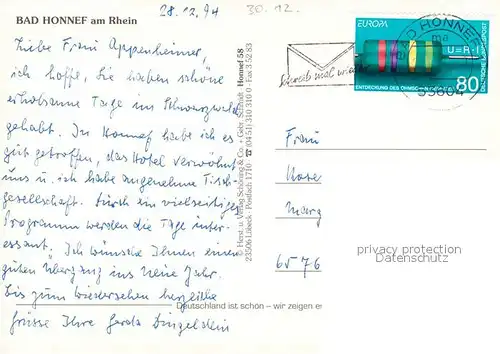 BAD HONNEF am Rhein
28.12.94
30.12.
Liebe Frau Appenheimer,
ich hoffe, Sie haben schöne
erholsame Tage im Schwarzwald
gehabt. In Honnef habe ich es
gut getroffen, das Hotel verwöhnt
uns u. ich habe angenehme Tisch-
gesellschaft. Durch ein vielseitiges
Programm werden die Tage inter-
essant. Ich wünsche Ihnen einen
guten Übergang ins neue Jahr.
Bis zum Wiedersehen herzliche
Grüsse Ihre Gerda
Honnef 58
© Herst. u. Verlag Schöning & Co. + Gebr. Schmidt
23506 Lübeck · Postfach 1710 ☎ (04 51) 310 310 0 · Fax 3 52 83
Deutschland ist schön – wir zeigen es
Schreib mal wieder
BAD HONNEF
ma
53604
EUROPA
U=R·I
DEUTSCHE BUNDESPOST
80
ENTDECKUNG DES OHMSCHEN
Frau
6576
privacy protection
Datenschutz